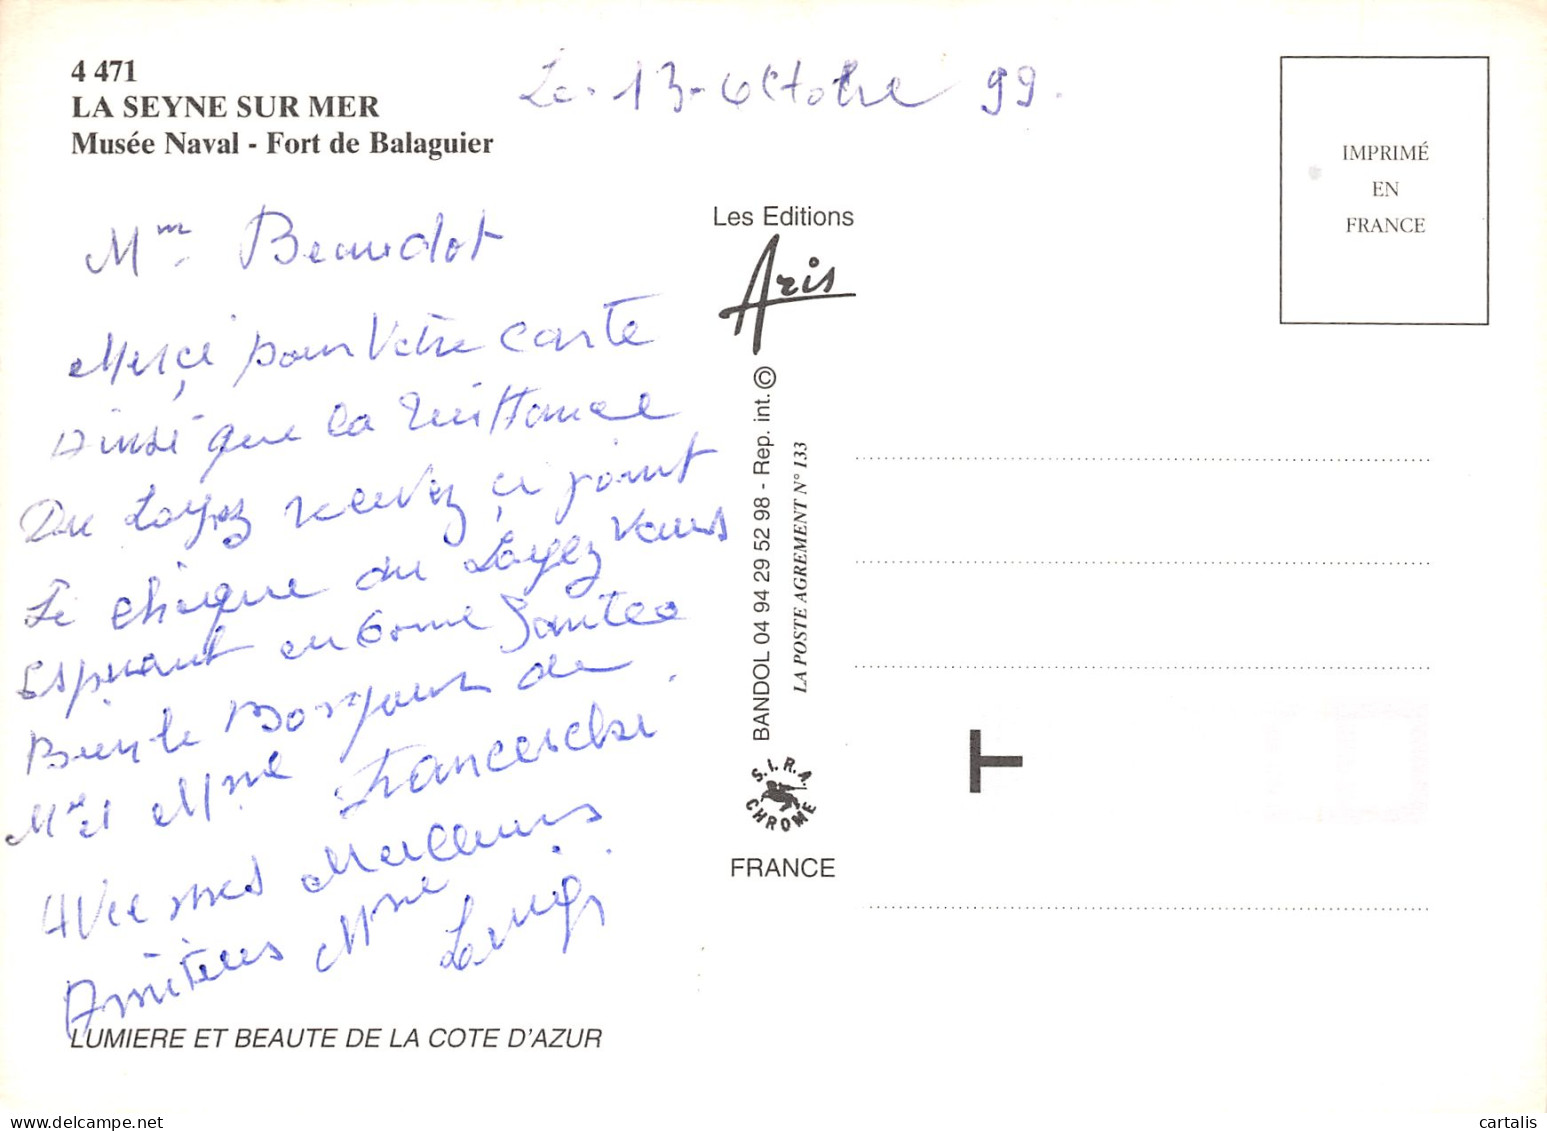 4 471
LA SEYNE SUR MER
Musée Naval - Fort de Balaguier
Le. 13. Octobre 99.
IMPRIMÉ
EN
FRANCE
Mm Beaudot
Merçi pour Votre carte
Ainsi que la quittance
Du Loyez recevez çi joint
Le chèque du Loyez Vous
Espérant en bonne Santée
Bien le Bonjour de
Mr et Mme Franceschi.
Avec mes Meilleurs
Amitées Mme
Luigi
LUMIERE ET BEAUTE DE LA COTE D'AZUR
Les Editions
Aris
BANDOL 04 94 29 52 98 - Rep. int. ©
LA POSTE AGREMENT N° 133
S.I.R.A.
CHROME
FRANCE
cartalis